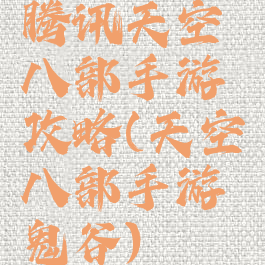 腾讯天空
八部手游
攻略(天空
八部手游
鬼谷)